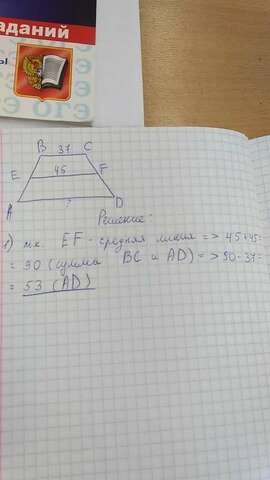 аданий
ы
ОГЭ
B 37 C
E 45 F
A ? D
Решение:
1) т.к. EF - средняя линия => 45+45=
= 90 (сумма BC и AD) => 90-37=
= 53 (AD)